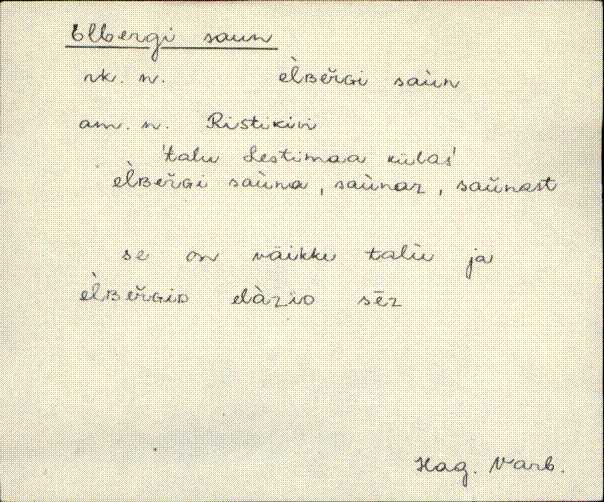 Elbergi saun
rk. n. èʟʙeř̆ɢi saùn
am. n. Ristikivi
'talu Lestimaa külas'
èʟʙeř̆ɢi saùna, saùnaz, saŭnast
se on väikke talŭ ja
èʟʙeř̆ɢiᴅ elàziᴅ sēz
Hag. Varb.